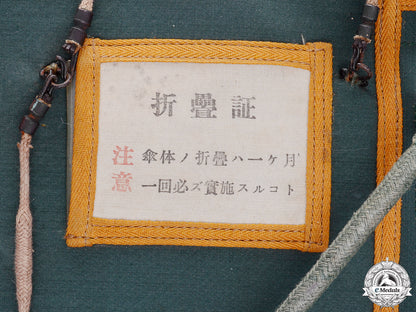 折疊証
注意
傘体ノ折疊ハ一ケ月
一回必ズ實施スルコト
eMedals